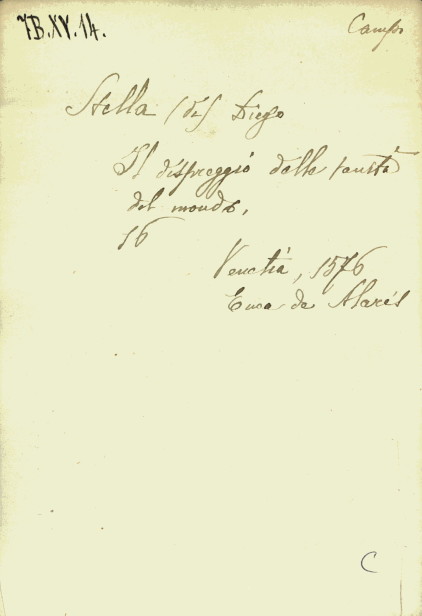 7B.XV.14.
Campo
Stella (di) Diego
Il dispreggio delle vanità
del mondo,
16
Venetia, 1576
de
C